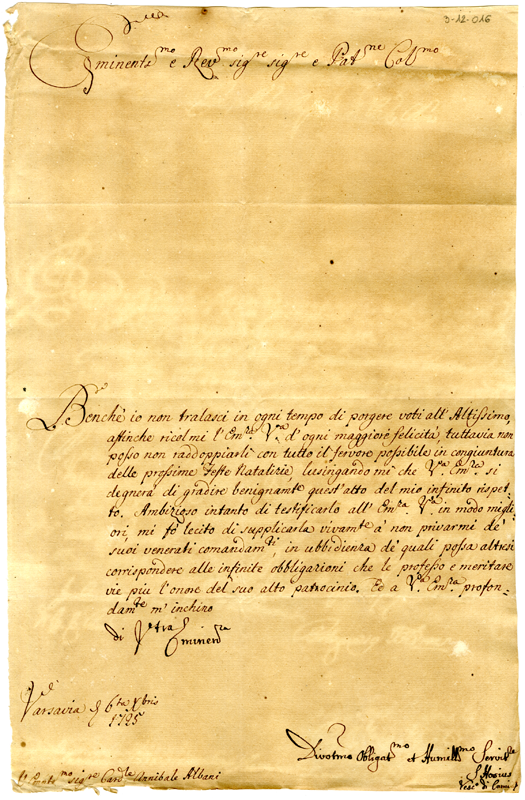 3-12-016
Eminent.mo e Rev.mo sig.re sig.re e Pat.ne Col.mo
Benche' io non tralasci in ogni tempo di porgere voti all' Altissimo,
affinche ricolmi l' Em.za V.ra d' ogni maggiore felicità, tuttavia non
posso non raddoppiarli con tutto il fervore possibile in congiuntura
delle prossime Feste Natalizie, lusingando mi che V.ra Em.za si
degnerà di gradire benignam.te quest' atto del mio infinito rispet-
to. Ambizioso intanto di testificarlo all' Em.za V.ra in modo migli-
ori, mi fò lecito di supplicarla vivam.te à non privarmi de'
suoi venerati comandam.ti, in ubbidienza de' quali possa altresi
corrispondere alle infinite obbligazioni che le professo e meritare
vie più l' onore del suo alto patrocinio. Ed a V.ra Em.za profon-
dam.te m' inchino
di V.tra Eminenza
Varsavia 6.ta Xbris
1725
Divot.mo Obligat.mo et Humill.mo Servit.re
S Hosius
Vesc.o di
Em.mo sig.re Card.le Annibale Albani